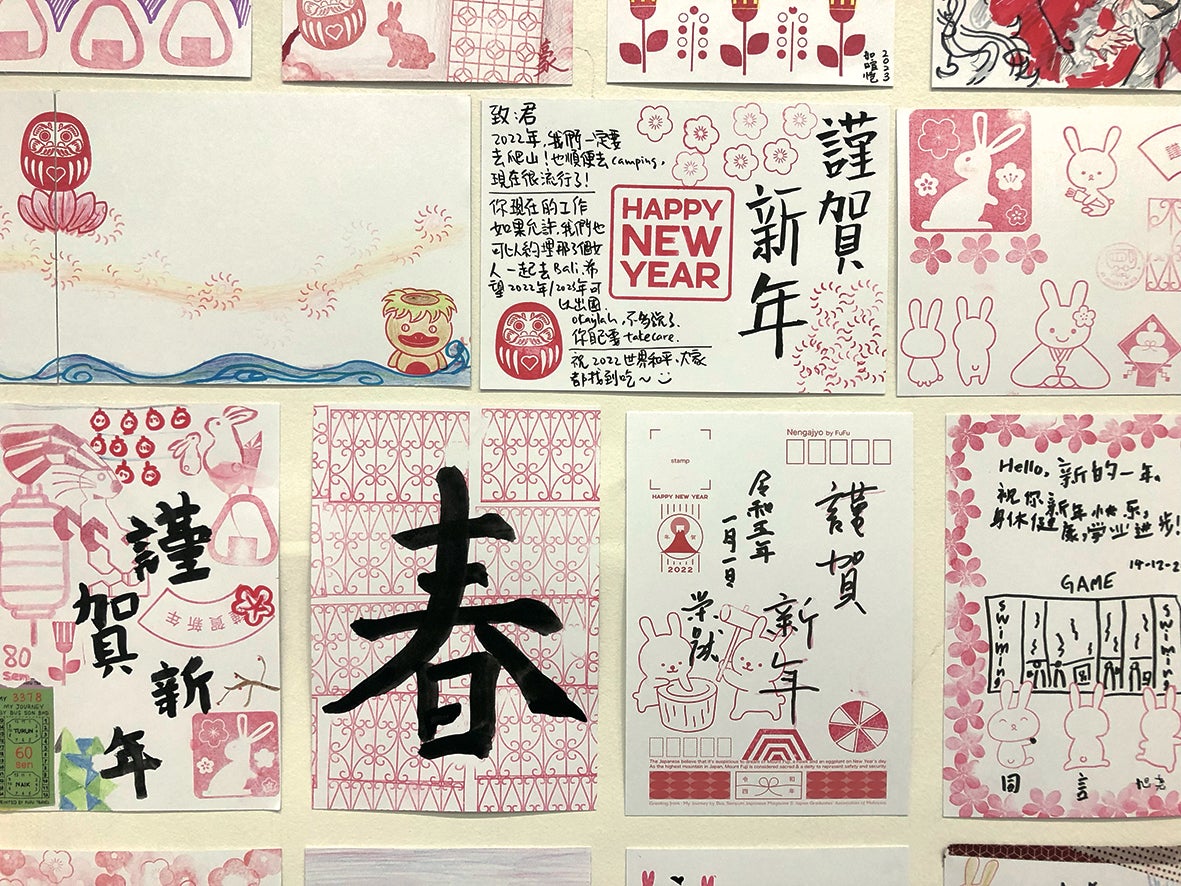 豪
2023
致:君
2022年,我們一定要
去爬山!也順便去camping,
現在很流行了!
你現在的工作
如果允許,我們也
可以約埋那3個女
人一起去Bali.希
望2022年/2023年可
以出國
okaylah,不多說了.
你自己要takecare.
祝,2022世界和平,大家
都找到吃~
HAPPY
NEW
YEAR
謹賀
新年
謹
賀
新
年
謹賀新年
80
sen
MY 3378
MY JOURNEY
BY BUS SON BAG
TURUN
60
sen
NAIK
春
Nengajyo by FuFu
stamp
HAPPY NEW YEAR
年 賀
2022
謹賀
新年
令和五年
一月一日
The Japanese believe that it's auspicious to dream of Mount Fuji, a hawk and an eggplant on New Year's day
As the highest mountain in Japan, Mount Fuji is considered sacred & a deity to represent safety and security
令 和
四 年
Greeting from : My Journey by Bus, Senyum Japanese Magazine & Japan Graduates' Association of Malaysia
Hello, 新的一年,
祝你新年快乐,
身体健康,学业进步!
19-12-2
GAME
swimins
swimins
同 言